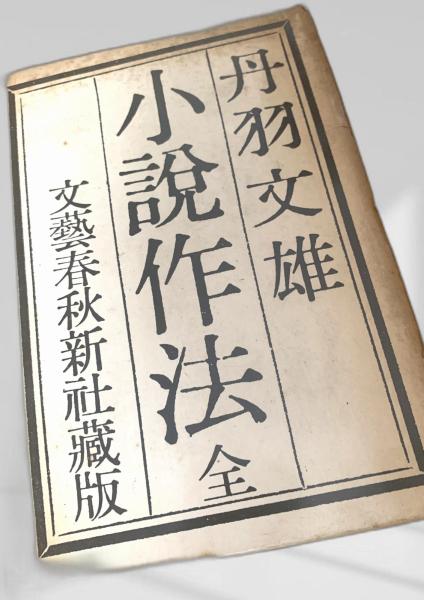 丹羽文雄
小説作法 全
文藝春秋新社藏版